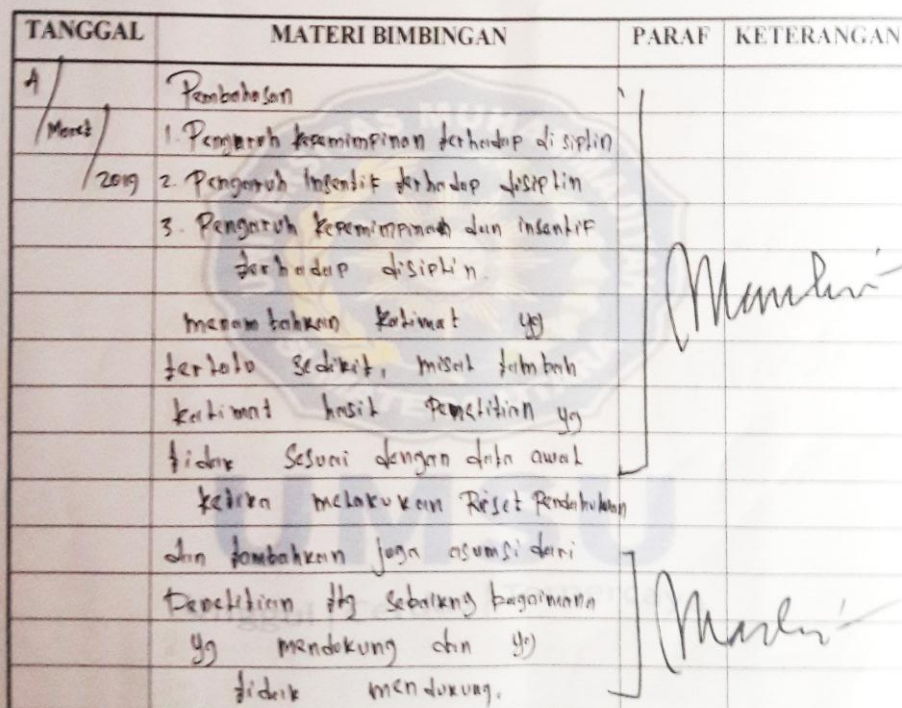 TANGGAL MATERI BIMBINGAN PARAF KETERANGAN
4/ Pembahasan
Maret/ 1. Pengaruh kepemimpinan terhadap disiplin
2019 2. Pengaruh Insentif terhadap disiplin
3. Pengaruh kepemimpinan dan insentif
terhadap disiplin.
menambahkan kalimat yg
terlalu sedikit, misal tambah
kalimat hasil Penelitian yg
tidak sesuai dengan data awal
ketika melakukan Riset Pendahuluan
dan tambahkan juga asumsi dari
Penelitian ttg sebaikng bagaimana
yg mendukung dan yg
tidak mendukung.
UMSU